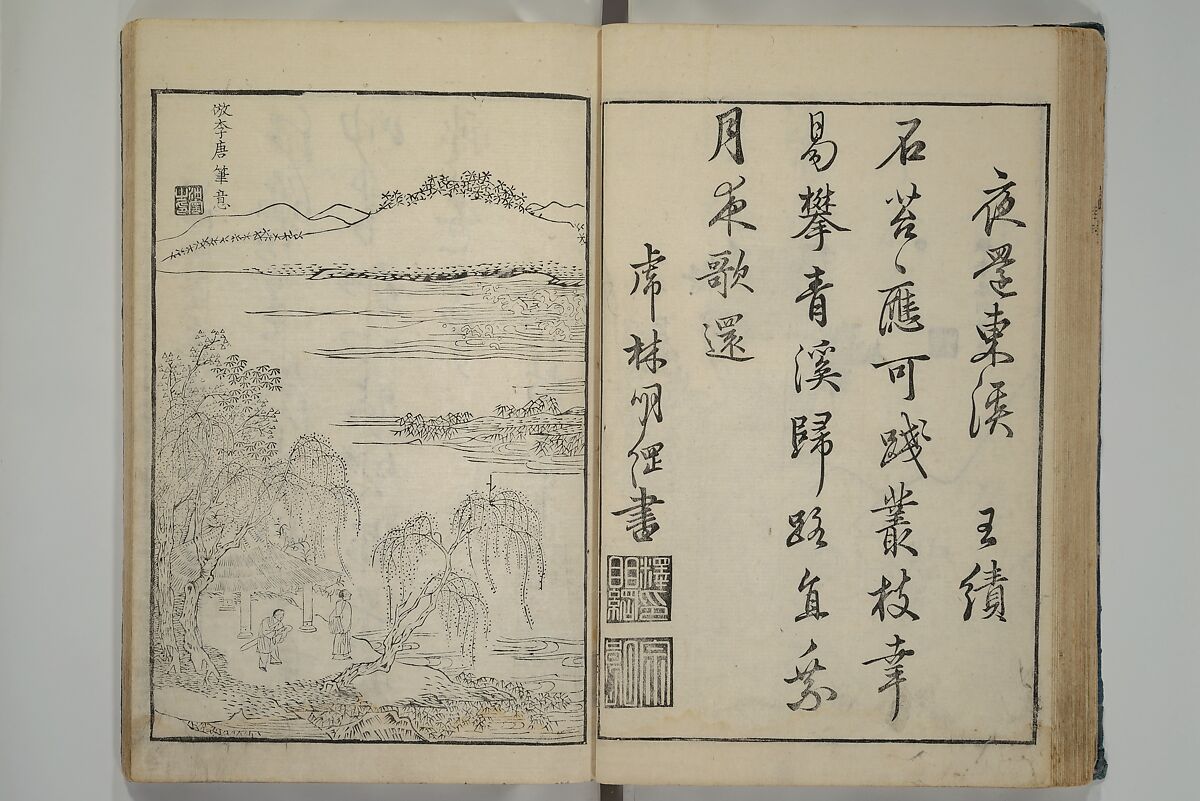 夜還東溪　王績
石苔應可踐叢枝幸
易攀青溪歸路直乘
月夜歌還
虎林明綱書
倣李唐筆意